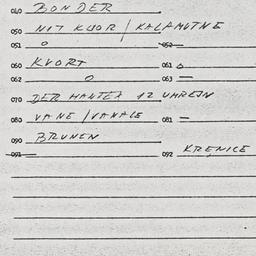 040 BONDER
050 NIT KLOR / KALAMUTNE
051 0 052 —
060 KVORT 061 0
062 0 063 —
070 DER MANTEX 12 UHREJN
080 VA NE / VANALE 081 —
090 BRUNEN
091 — 092 KRENICE